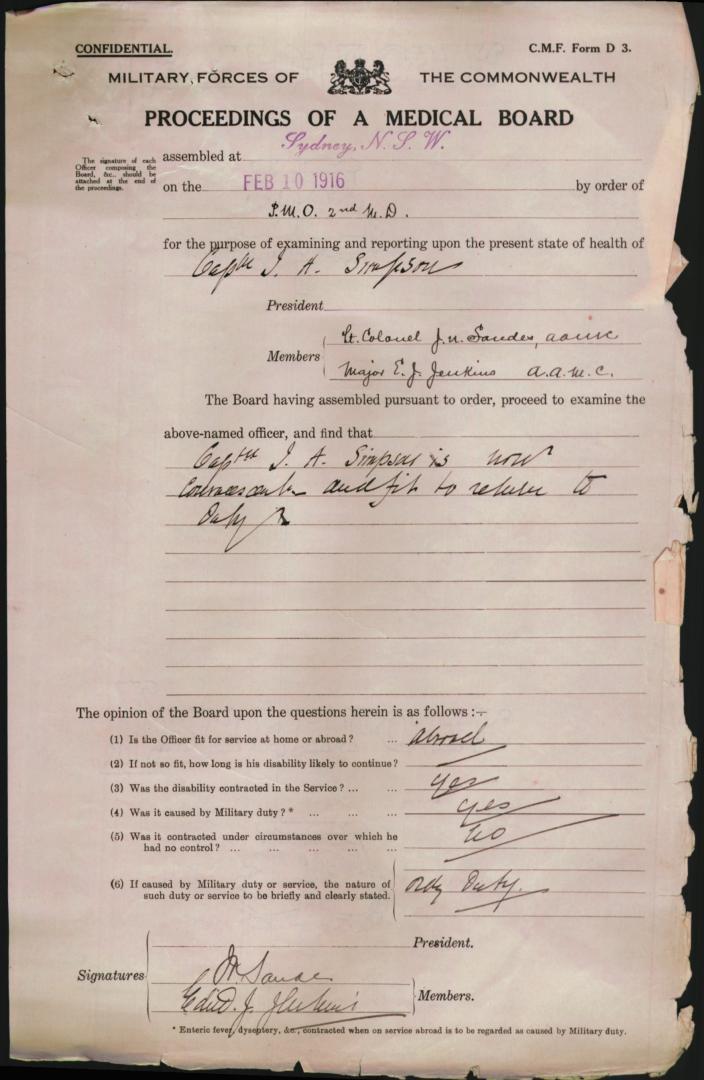 CONFIDENTIAL.
C.M.F. Form D 3.
MILITARY FORCES OF THE COMMONWEALTH
PROCEEDINGS OF A MEDICAL BOARD
The signature of each
Officer composing the
Board, &c., should be
attached at the end of
the proceedings.
assembled at Sydney, N. S. W.
on the FEB 10 1916 by order of
P.M.O. 2nd M.D.
for the purpose of examining and reporting upon the present state of health of
Captn J. A. Simpson
President
Members
Lt. Colonel J. Sandes, AAMC
Major E. J. Jenkins A.A.M.C.
The Board having assembled pursuant to order, proceed to examine the
above-named officer, and find that
Captn J. A. Simpson is now
and fit to return to
Duty
The opinion of the Board upon the questions herein is as follows :—
(1) Is the Officer fit for service at home or abroad? ... abroad
(2) If not so fit, how long is his disability likely to continue?
(3) Was the disability contracted in the Service? ... ... yes
(4) Was it caused by Military duty? * ... ... ... yes
(5) Was it contracted under circumstances over which he
had no control? ... ... ... ... ... no
(6) If caused by Military duty or service, the nature of
such duty or service to be briefly and clearly stated.
Duty.
President.
Signatures
Sandes
Edwd. J. Jenkins
Members.
* Enteric fever, dysentery, &c., contracted when on service abroad is to be regarded as caused by Military duty.